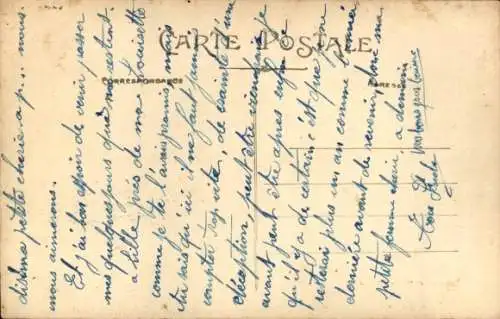 CARTE POSTALE
CORRESPONDANCE
ADRESSE
dis ma petite chérie a p.. nous.
nous aimerons.
Et j'ai bon espoir de venir passer
mes quelques jours que me restent
a Lille près de ma Louisette
comme je te l'avais promis, mais
tu sais qu'ici il ne faut jamais
compter trop vite, de crainte d'une
déception, peut être viendrai je
avant peut être après enfin
qu'il y a de certain c'est que je ne
resterai plus un an comme l'année
dernière avant de revenir, bon ma
petite femme chérie, a demain